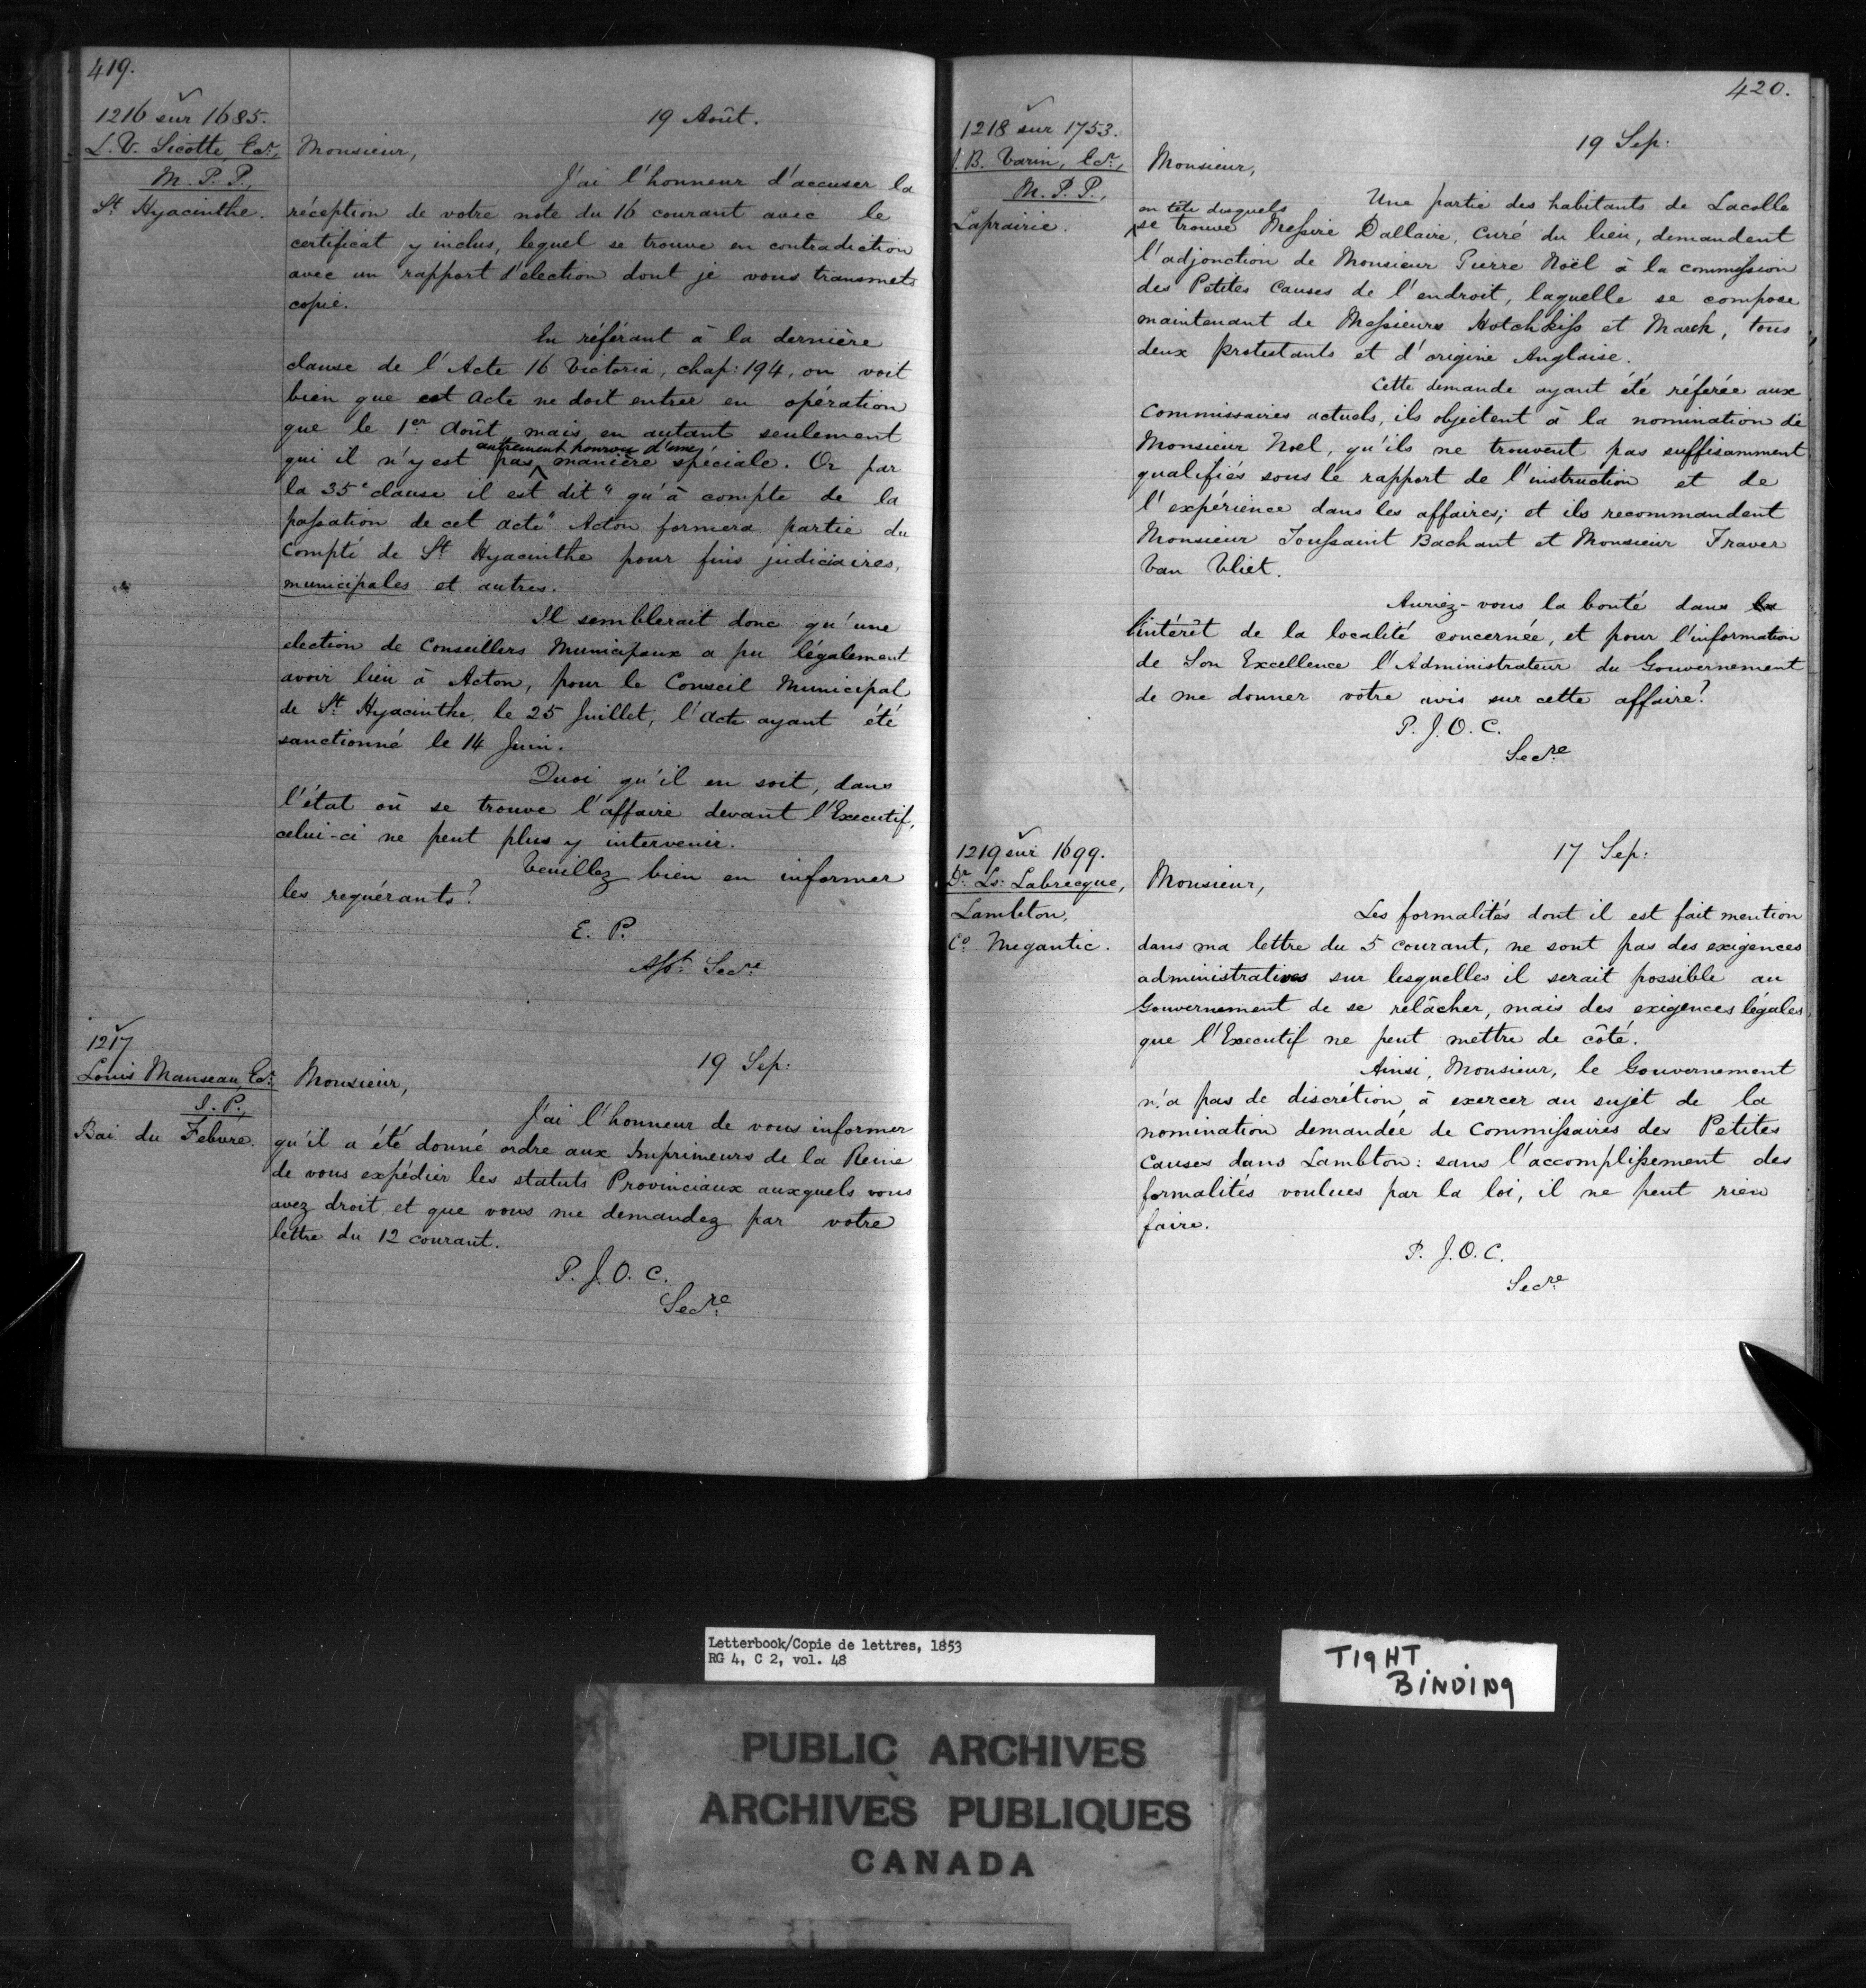 419.
1216 sur 1685.
L. V. Sicotte, Ecr.,
M. P. P.,
St. Hyacinthe.
19 Août.
Monsieur,
J'ai l'honneur d'accuser la
réception de votre note du 16 courant avec le
certificat y inclus, lequel se trouve en contradiction
avec un rapport d'election dont je vous transmets
copie.
En référant à la dernière
clause de l'Acte 16 Victoria, chap: 194, on voit
bien que cet Acte ne doit entrer en opération
que le 1er Août, mais en autant seulement
autrement pourvu d'une
qui il n'y est pas manière spéciale. Or par
la 35e clause il est dit "qu'à compte de la
passation de cet acte" Acton formera partie du
Compté de St. Hyacinthe pour fins judiciaires,
municipales et autres.
Il semblerait donc qu'une
election de Conseillers Municipaux a pu légalement
avoir lieu à Acton, pour le Conseil Municipal
de St. Hyacinthe, le 25 Juillet, l'Acte ayant été
sanctionné le 14 Juin.
Quoi qu'il en soit, dans
l'état où se trouve l'affaire devant l'Executif,
celui-ci ne peut plus y intervenir.
Veuillez bien en informer
les requérants?
E. P.
Asst. Secre
1217
Louis Manseau, Ecr.
J. P.,
Bai du Febvre.
19 Sep:
Monsieur,
J'ai l'honneur de vous informer
qu'il a été donné ordre aux Imprimeurs de la Reine
de vous expédier les statuts Provinciaux auxquels vous
avez droit, et que vous me demandez par votre
lettre du 12 courant.
P. J. O. C.
Secre
420.
1218 sur 1753.
J. B. Varin, Ecr.,
M. P. P.,
Laprairie.
19 Sep:
Monsieur,
Une partie des habitants de Lacolle
en tête desquels
se trouve Messire Dallaire, Curé du lieu, demandent
l'adjonction de Monsieur Pierre Noël à la commission
des Petites Causes de l'endroit, laquelle se compose
maintenant de Messieurs Hotchkiss et March, tous
deux protestants et d'origine Anglaise.
Cette demande ayant été référée aux
Commissaires actuels, ils objectent à la nomination de
Monsieur Noel, qu'ils ne trouvent pas suffisamment
qualifiés sous le rapport de l'instruction et de
l'expérience dans les affaires; et ils recommandent
Monsieur Toussaint Bachant et Monsieur Traver
Van Vliet.
Auriez-vous la bonté dans
l'intérêt de la localité concernée, et pour l'information
de Son Excellence l'Administrateur du Gouvernement
de me donner votre avis sur cette affaire?
P. J. O. C.
Secre
1219 sur 1699.
Dr. Ls: Labrecque,
Lambton,
Co. Megantic.
17 Sep:
Monsieur,
Les formalités dont il est fait mention
dans ma lettre du 5 courant, ne sont pas des exigences
administratives sur lesquelles il serait possible au
Gouvernement de se relâcher, mais des exigences légales,
que l'Executif ne peut mettre de côté.
Ainsi, Monsieur, le Gouvernement
n'a pas de discrétion à exercer au sujet de la
nomination demandée de Commissaires des Petites
Causes dans Lambton: sans l'accomplissement des
formalités voulues par la loi, il ne peut rien
faire.
P. J. O. C.
Secre
Letterbook/Copie de lettres, 1853
RG 4, C 2, vol. 48
TIGHT
BINDING
PUBLIC ARCHIVES
ARCHIVES PUBLIQUES
CANADA